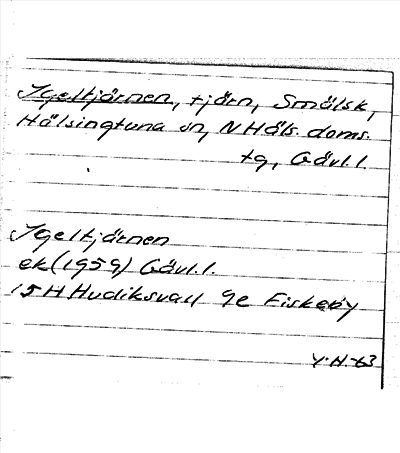 Igeltjärnen, tjärn, Smälsk,
Hälsingtuna sn, N Häls. doms.
tg, Gävl.l.
Igeltjärnen
ek (1959) Gävl.l.
15H Hudiksvall 9e Fiskeby
Y.H.-63